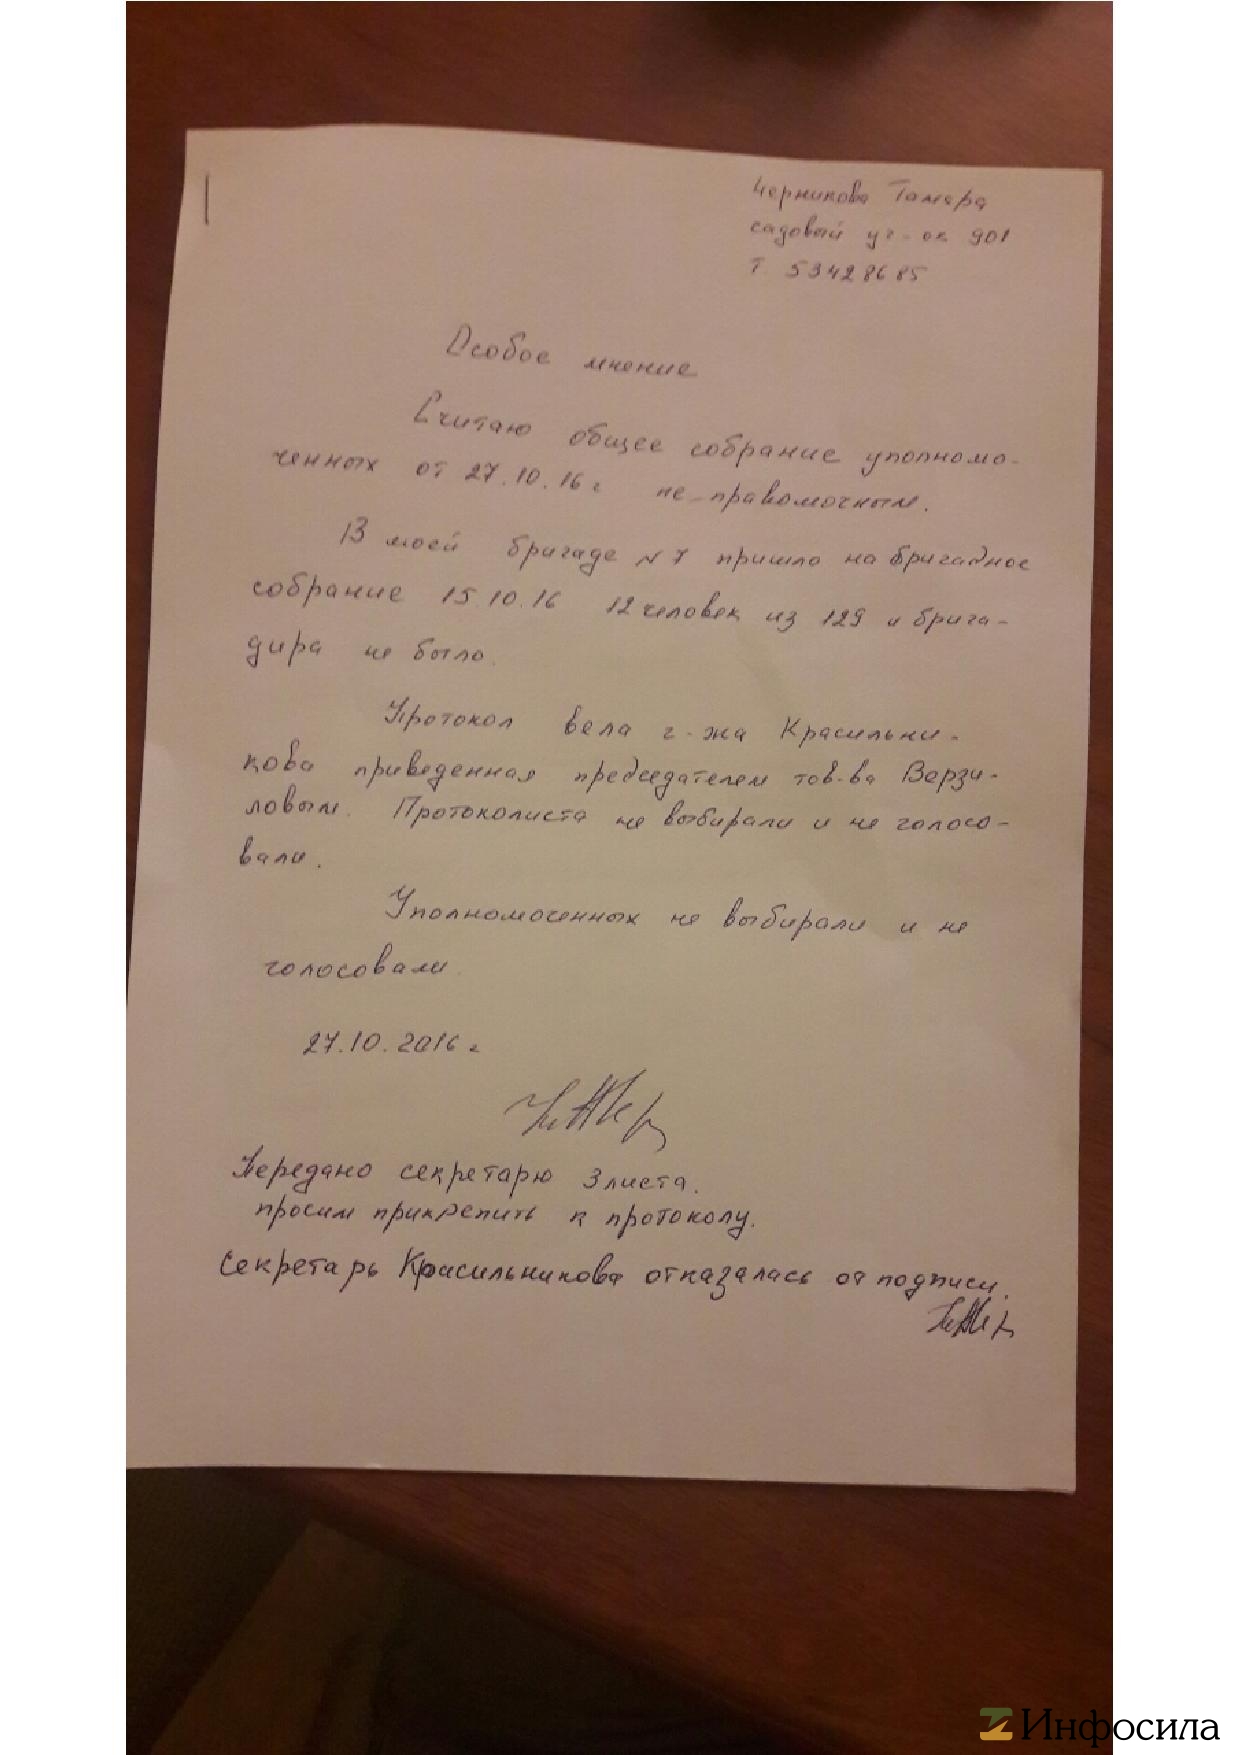 Черникова Тамара
садовый уч-ок 901
т. 53428685
Особое мнение
Считаю общее собрание уполномо-
ченных от 27.10.16г не правомочным.
В моей бригаде N7 пришло на бригадное
собрание 15.10.16 12 человек из 129 и брига-
дира не было.
Протокол вела г-жа Красильни-
кова приведенная председателем тов-ва Верзи-
ловым. Протоколиста не выбирали и не голосо-
вали.
Уполномоченных не выбирали и не
голосовали.
27.10.2016г
Передано секретарю 3 листа.
просим прикрепить к протоколу.
Секретарь Красильникова отказалась от подписи.
Инфосила